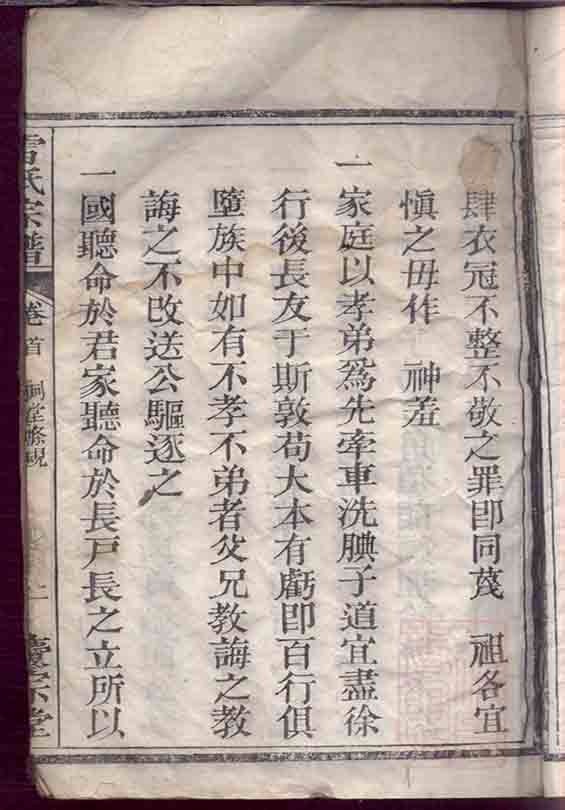 肆衣冠不整不敬之罪卽同蔑　祖各宜
愼之毋作　神羞
一家庭以孝弟爲先牽車洗腆子道宜盡徐
行後長友于斯敦苟大本有虧卽百行俱
墮族中如有不孝不弟者父兄教誨之教
誨之不改送公驅逐之
一國聽命於君家聽命於長戶長之立所以
氏宗譜
卷首
祠堂條規
慶宗堂